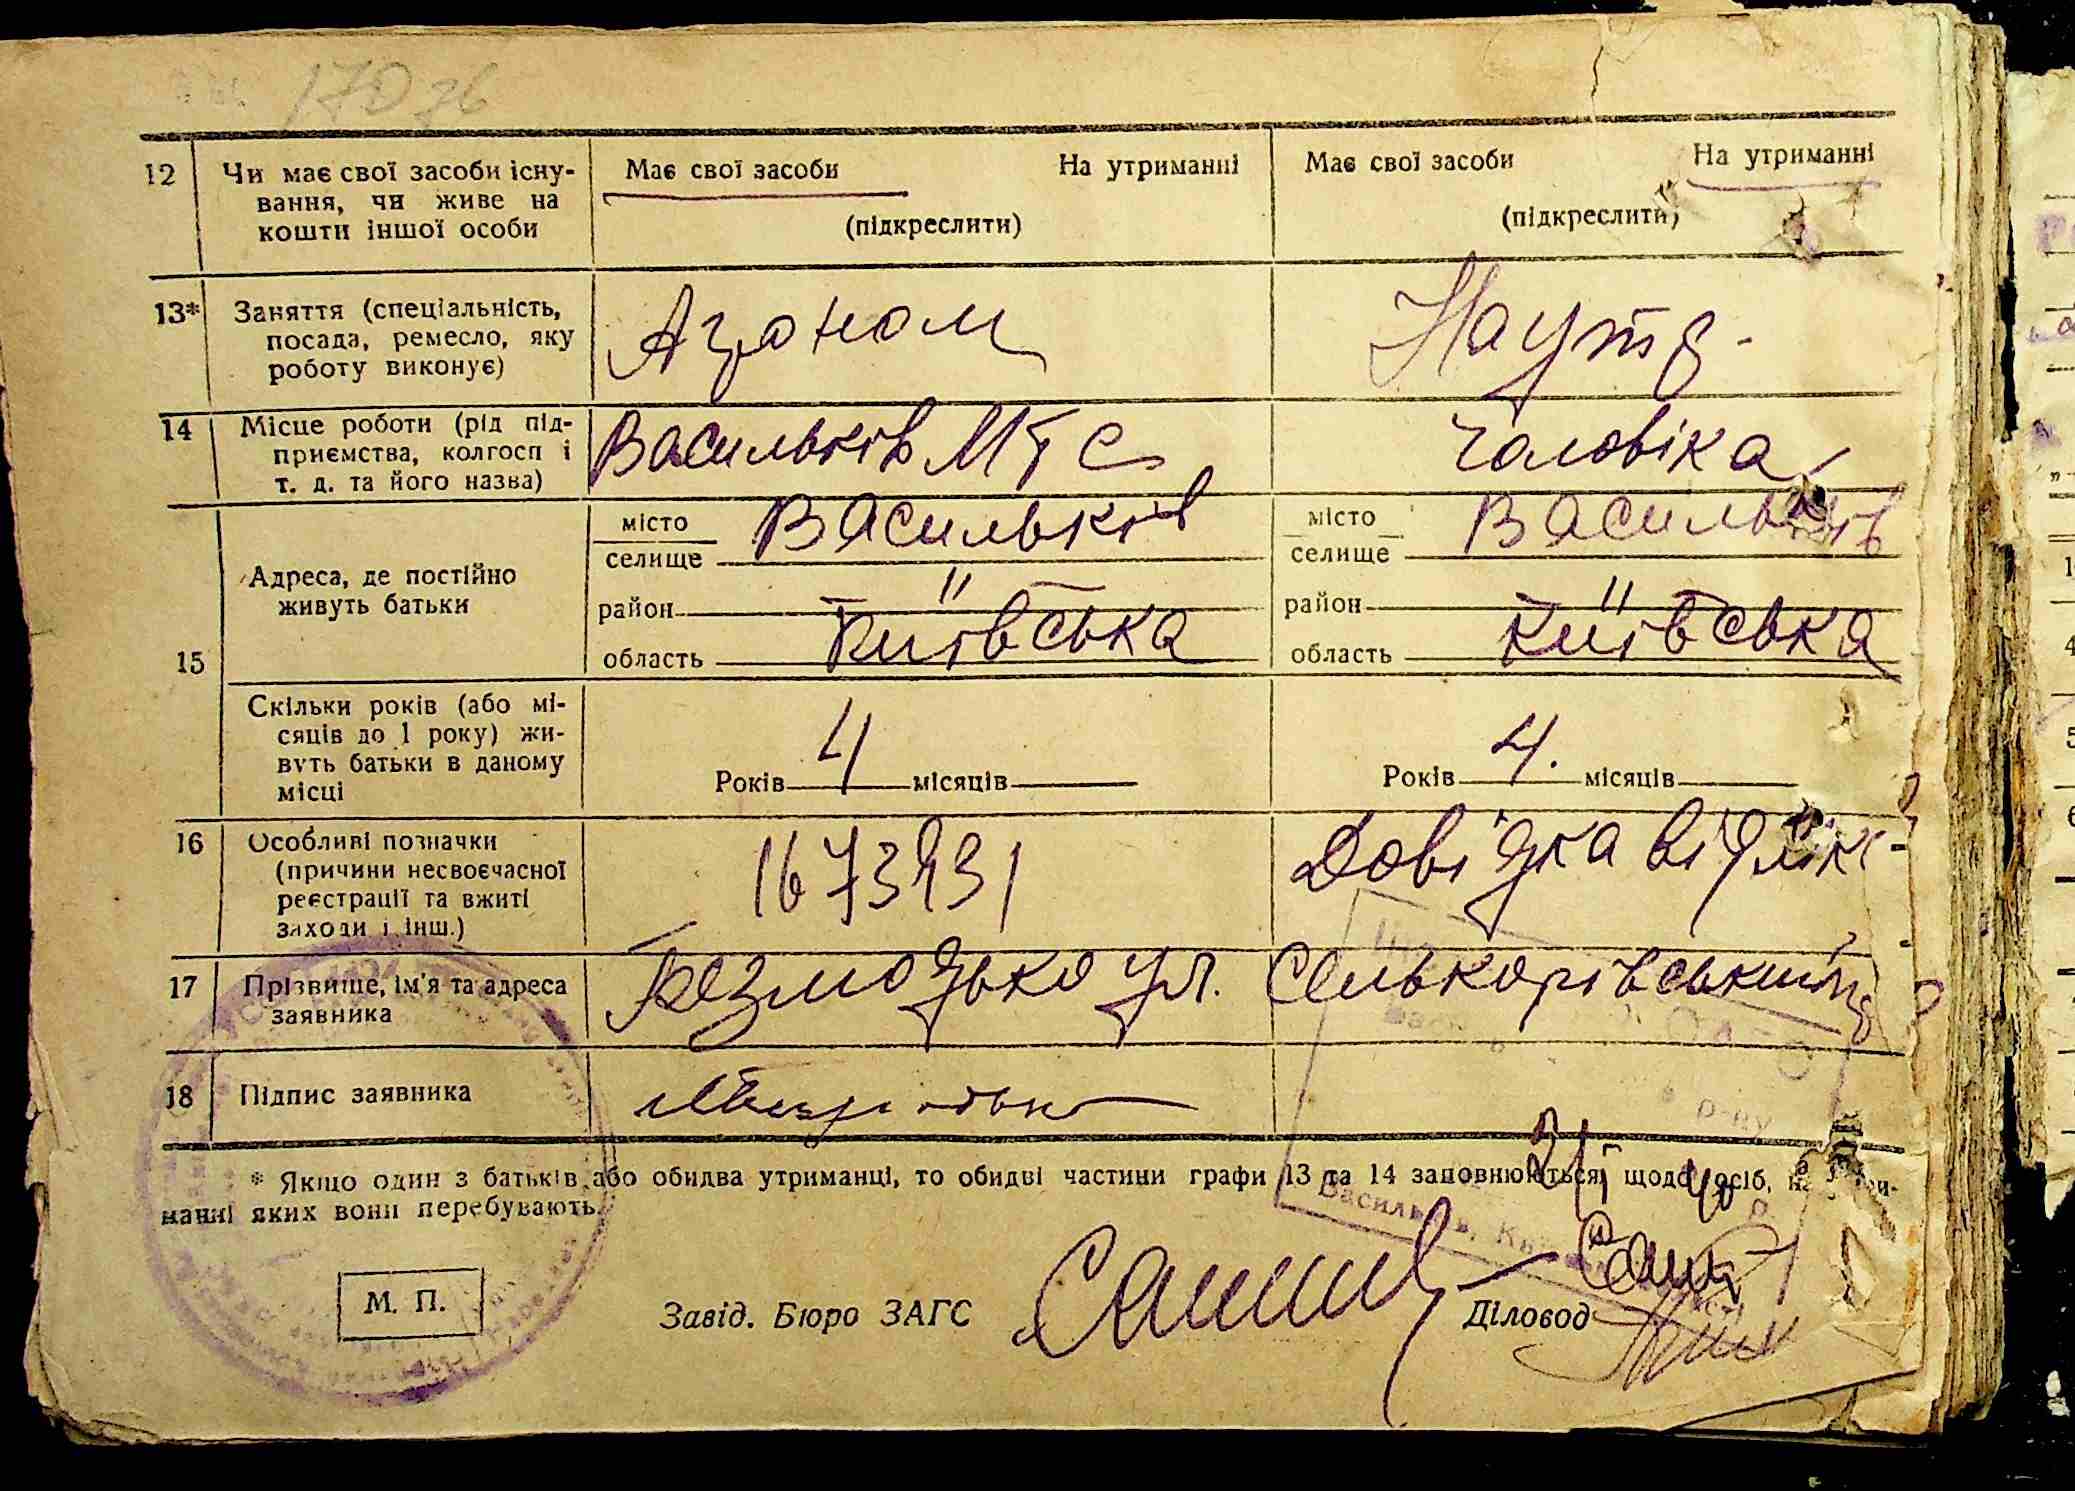 170 зв
12 Чи має свої засоби існу-
вання, чи живе на
кошти іншої особи
Має свої засоби На утриманні
(підкреслити)
Має свої засоби На утриманні
(підкреслити)
13* Заняття (спеціальність,
посада, ремесло, яку
роботу виконує)
Агроном
На утр.
14 Місце роботи (рід під-
приємства, колгосп і
т. д. та його назва)
Васильків МТС
чоловіка
15 Адреса, де постійно
живуть батьки
місто Васильків
селище
район "
область Київська
місто Васильків
селище
район "
область Київська
Скільки років (або мі-
сяців до 1 року) жи-
вуть батьки в даному
місці
Років 4 місяців
Років 4. місяців
16 Особливі позначки
(причини несвоєчасної
реєстрації та вжиті
заходи і інш.)
Довідка від лік
17 Прізвище, ім'я та адреса
заявника
ул.
18 Підпис заявника
* Якщо один з батьків або обидва утриманці, то обидві частини графи 13 та 14 заповнюються щодо осіб, на утри-
манні яких вони перебувають.
М. П.
Завід. Бюро ЗАГС
Діловод